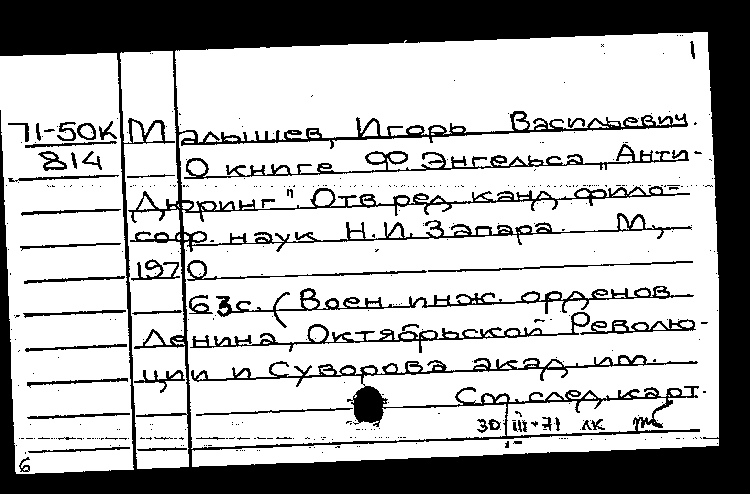 1
71-50К Малышев, Игорь Васильевич.
814 О книге Ф. Энгельса „Анти-
Дюринг". Отв. ред. канд. фило-
соф. наук Н.И. Запара. М.,
1970.
63с. (Воен. инж. орденов
Ленина, Октябрьской Револю-
ции и Суворова акад. им.
См. след. карт.
30 III-71 лк
6